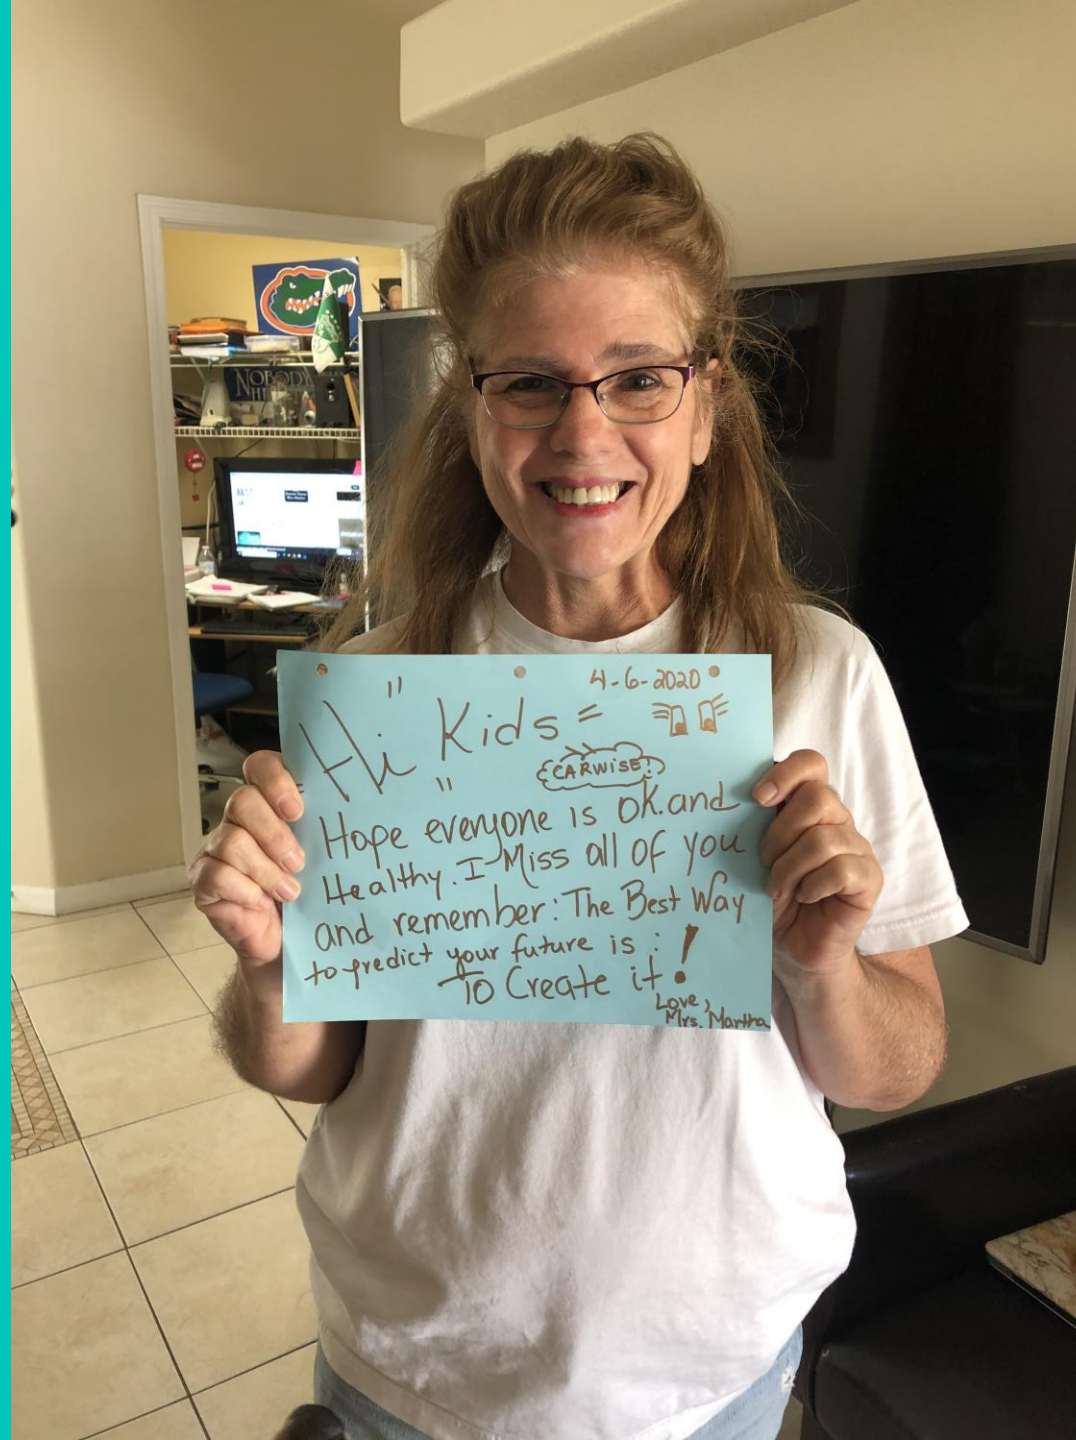 NOBODY
BEST
4-6-2020
"Hi" Kids =
CARWISE!
Hope everyone is OK. and
Healthy. I Miss all of you
and remember: The Best Way
to predict your future is :
To Create it!
Love,
Mrs. Martha